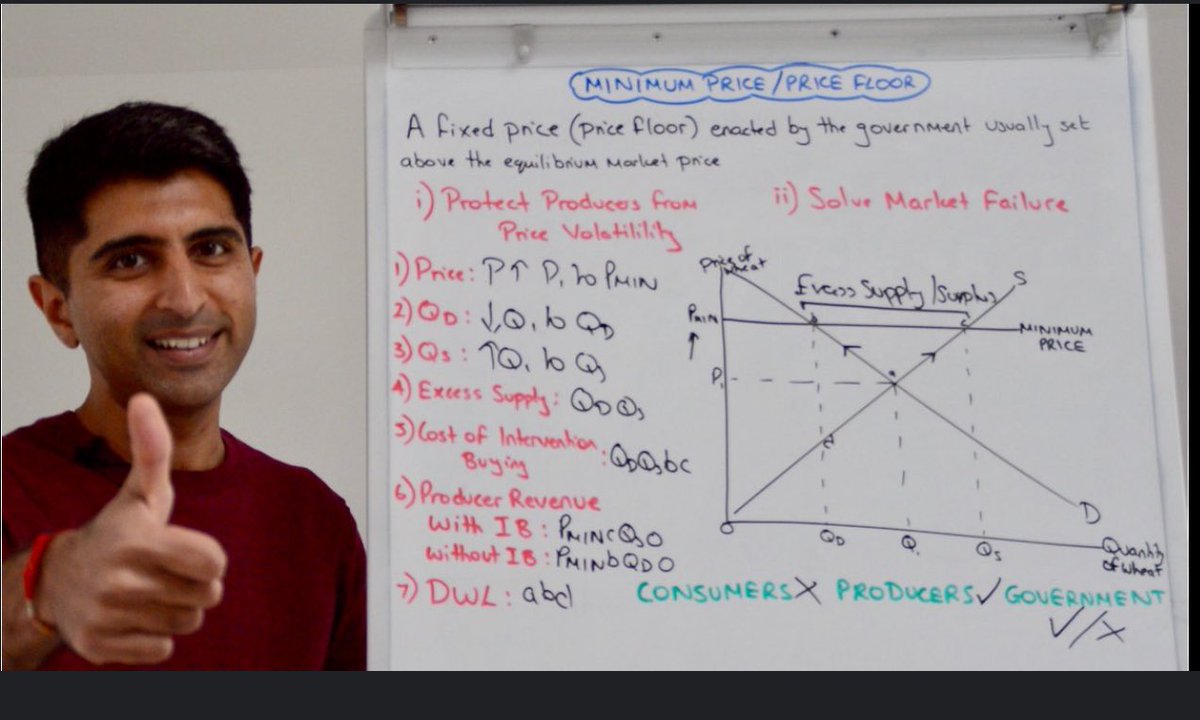 MINIMUM PRICE/PRICE FLOOR
A fixed price (price floor) enacted by the government usually set
above the equilibrium market price
i) Protect Producers from
Price Volatilility
ii) Solve Market Failure
1) Price: P↑ P₁ to PMIN
2) QD: ↓Q₁ to QD
3) QS: ↑Q₁ to QS
4) Excess Supply: QDQS
5) Cost of Intervention
Buying : QDQSbc
6) Producer Revenue
With IB: PMINCQSO
Without IB: PMINbQDO
7) DWL: abd
Price of
wheat
Excess Supply/Surplus
S
PMIN
b
c
MINIMUM
PRICE
↑
P₁
a
d
D
O
QD
Q₁
QS
Quantity
of wheat
CONSUMERS X PRODUCERS ✓ GOVERNMENT
✓/X